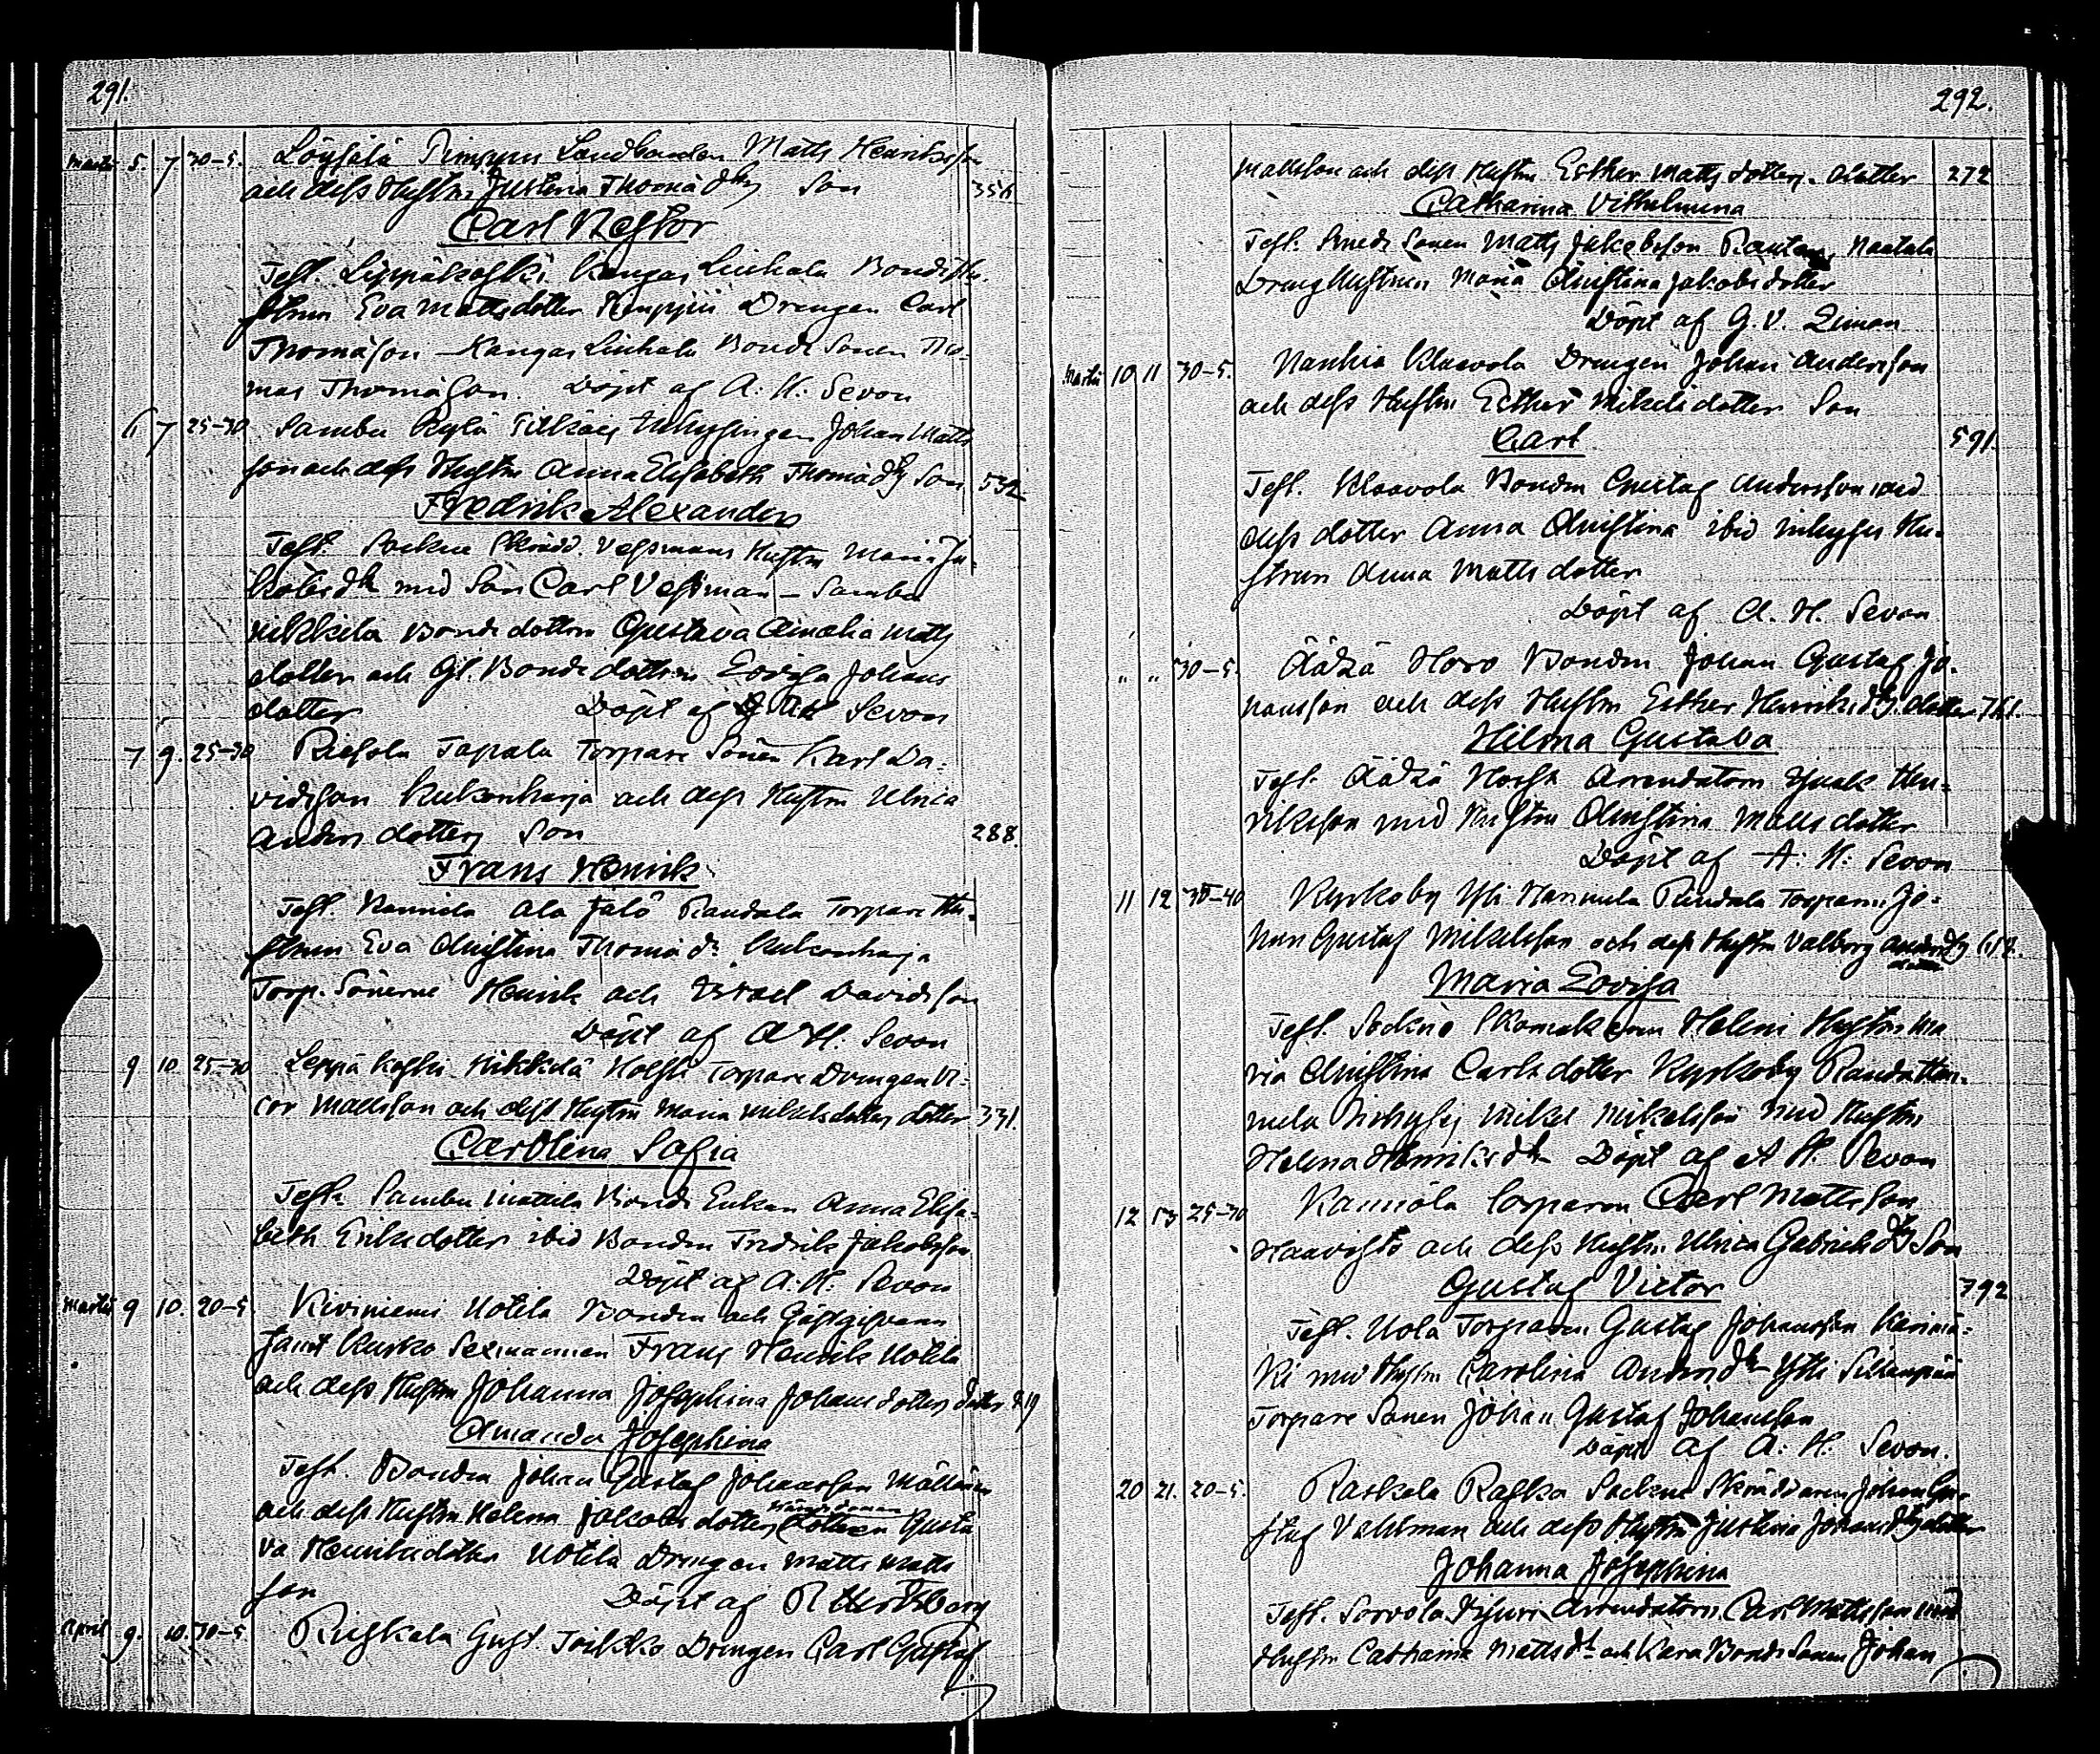 291.
Martii 5. 7. 30–5. Löysälä Landbonden Matts Henriksson
och dess Hustru Justina Thomä dtr Son 356
Carl Nestor
Test. Leppäkoski Kangas Liuhala Bonde Hu-
strun Eva Mattsdotter Drengen Carl
Thomäson – Kangas Liuhala Bonde Sonen Tho-
mas Thomäson. Döpt af A. H. Sevon
6 7 25–30 Sambu Pylä Inhysingen Johan Matts
son och dess Hustru Anna Elisabeth Thomä dtr Son 532
Fredrik Alexander
Test. Sockne Skrädd. Vessmans Hustru Maria Ja-
kobs dtr med Son Carl Vessman – Sambu
Mikkila Bonde dottren Gustava Amalia Matts
dotter och Gl. Bonde dottren Lovisa Johans
dotter Döpt af A H Sevon
7 9. 25–30 Torpare Sonen Karl Da-
vidsson Kukonharja och dess Hustru Ulrica
Anders dotter Son 288.
Frans Henrik
Test. Ala Jalo Raudala Torpare Hu-
strun Eva Christina Thomä dr Kukonharja
Torp. Sönerne Henrik och Israel Davidsson
Döpt af A H. Sevon
9 10 25–30 Leppäkoski Mikkilä Torpare Drengen Vi-
cor Mattsson och dess Hustru Maria Mikaelsdotter dotter 331.
Carolina Sofia
Test. Sambu Mattila Bonde Enkan Anna Elisa-
beth Eriksdotter ibid Bonden Fredrik Jakobsson
Döpt af A. H. Sevon
Martii 9 10. 20–5. Kiviniemi Uotila Bonden och Gästgifvaren
samt Kyrko Sexmannen Frans Henrik Uotila
och dess Hustru Johanna Josephina Johans dotter dotter 819
Amanda Josephina
Test. Bonden Johan Gustaf Johansson
och dess Hustru Helena Jakobs dotter Gusta
va Henriksdotter Uotila Drengen Matts Matts
son Döpt af R Hertzberg
April 9. 10. 30–5 Riskala Drengen Carl Gustaf
292.
Mattsson och dess Hustru Esther Matts dotter. dotter 272
Catharina Vilhelmina
Test. Smeds Sonen Matts Jakobsson
Dreng Hustrun Maria Christina Jakobs dotter
Döpt af G. V. Liman
Martii 10 11 30–5. Drengen Johan Andersson
och dess Hustru Esther Mikels dotter Son
Carl 591.
Test. Klaavola Bonden Gustaf Andersson med
dess dotter Anna Christina ibid inhyses Hu-
strun Anna Matts dotter
Döpt af A. H. Sevon
" " 30–5. Äätsä Horo Bonden Johan Gustaf Jo-
hansson och dess Hustru Esther Henriks dtr. dotter 761.
Hilma Gustava
Test. Äätsä Arrendatorn Isaak Hen-
riksson med Hustru Christina Matts dotter
Döpt af A. H. Sevon
11 12 35–40 Kyrkoby Yli Torparen Jo-
han Gustaf Mikelsson och dess Hustru Valborg Anders dtr 612.
Maria Lovisa
Test. Sockne Skomakaren Helini Hustru Ma
ria Christina Carls dotter Kyrkoby
Inhyses Mikel Mikelsson med Hustru
Helena Henriks dtr Döpt af A H. Sevon
12 13 25–30 Torparen Carl Mattsson
Haavisto och dess Hustru Ulrica Gabriels dtr Son
Gustaf Victor 792
Test. Uola Torparen Gustaf Johansson
med Hustru Carolina Anders dtr Yli Sillanpää
Torpare Sonen Johan Gustaf Johansson
Döpt af A. H. Sevon.
20 21. 20–5. Raskala Raska Sockne Skräddaren Johan Gu-
staf Vessman och dess Hustru Justina Johans dtr dotter
Johanna Josephina
Test. Sorvola Arrendatorn Carl Mattsson med
Hustru Catharina Matts dtr och Kara Bonde Sonen Johan